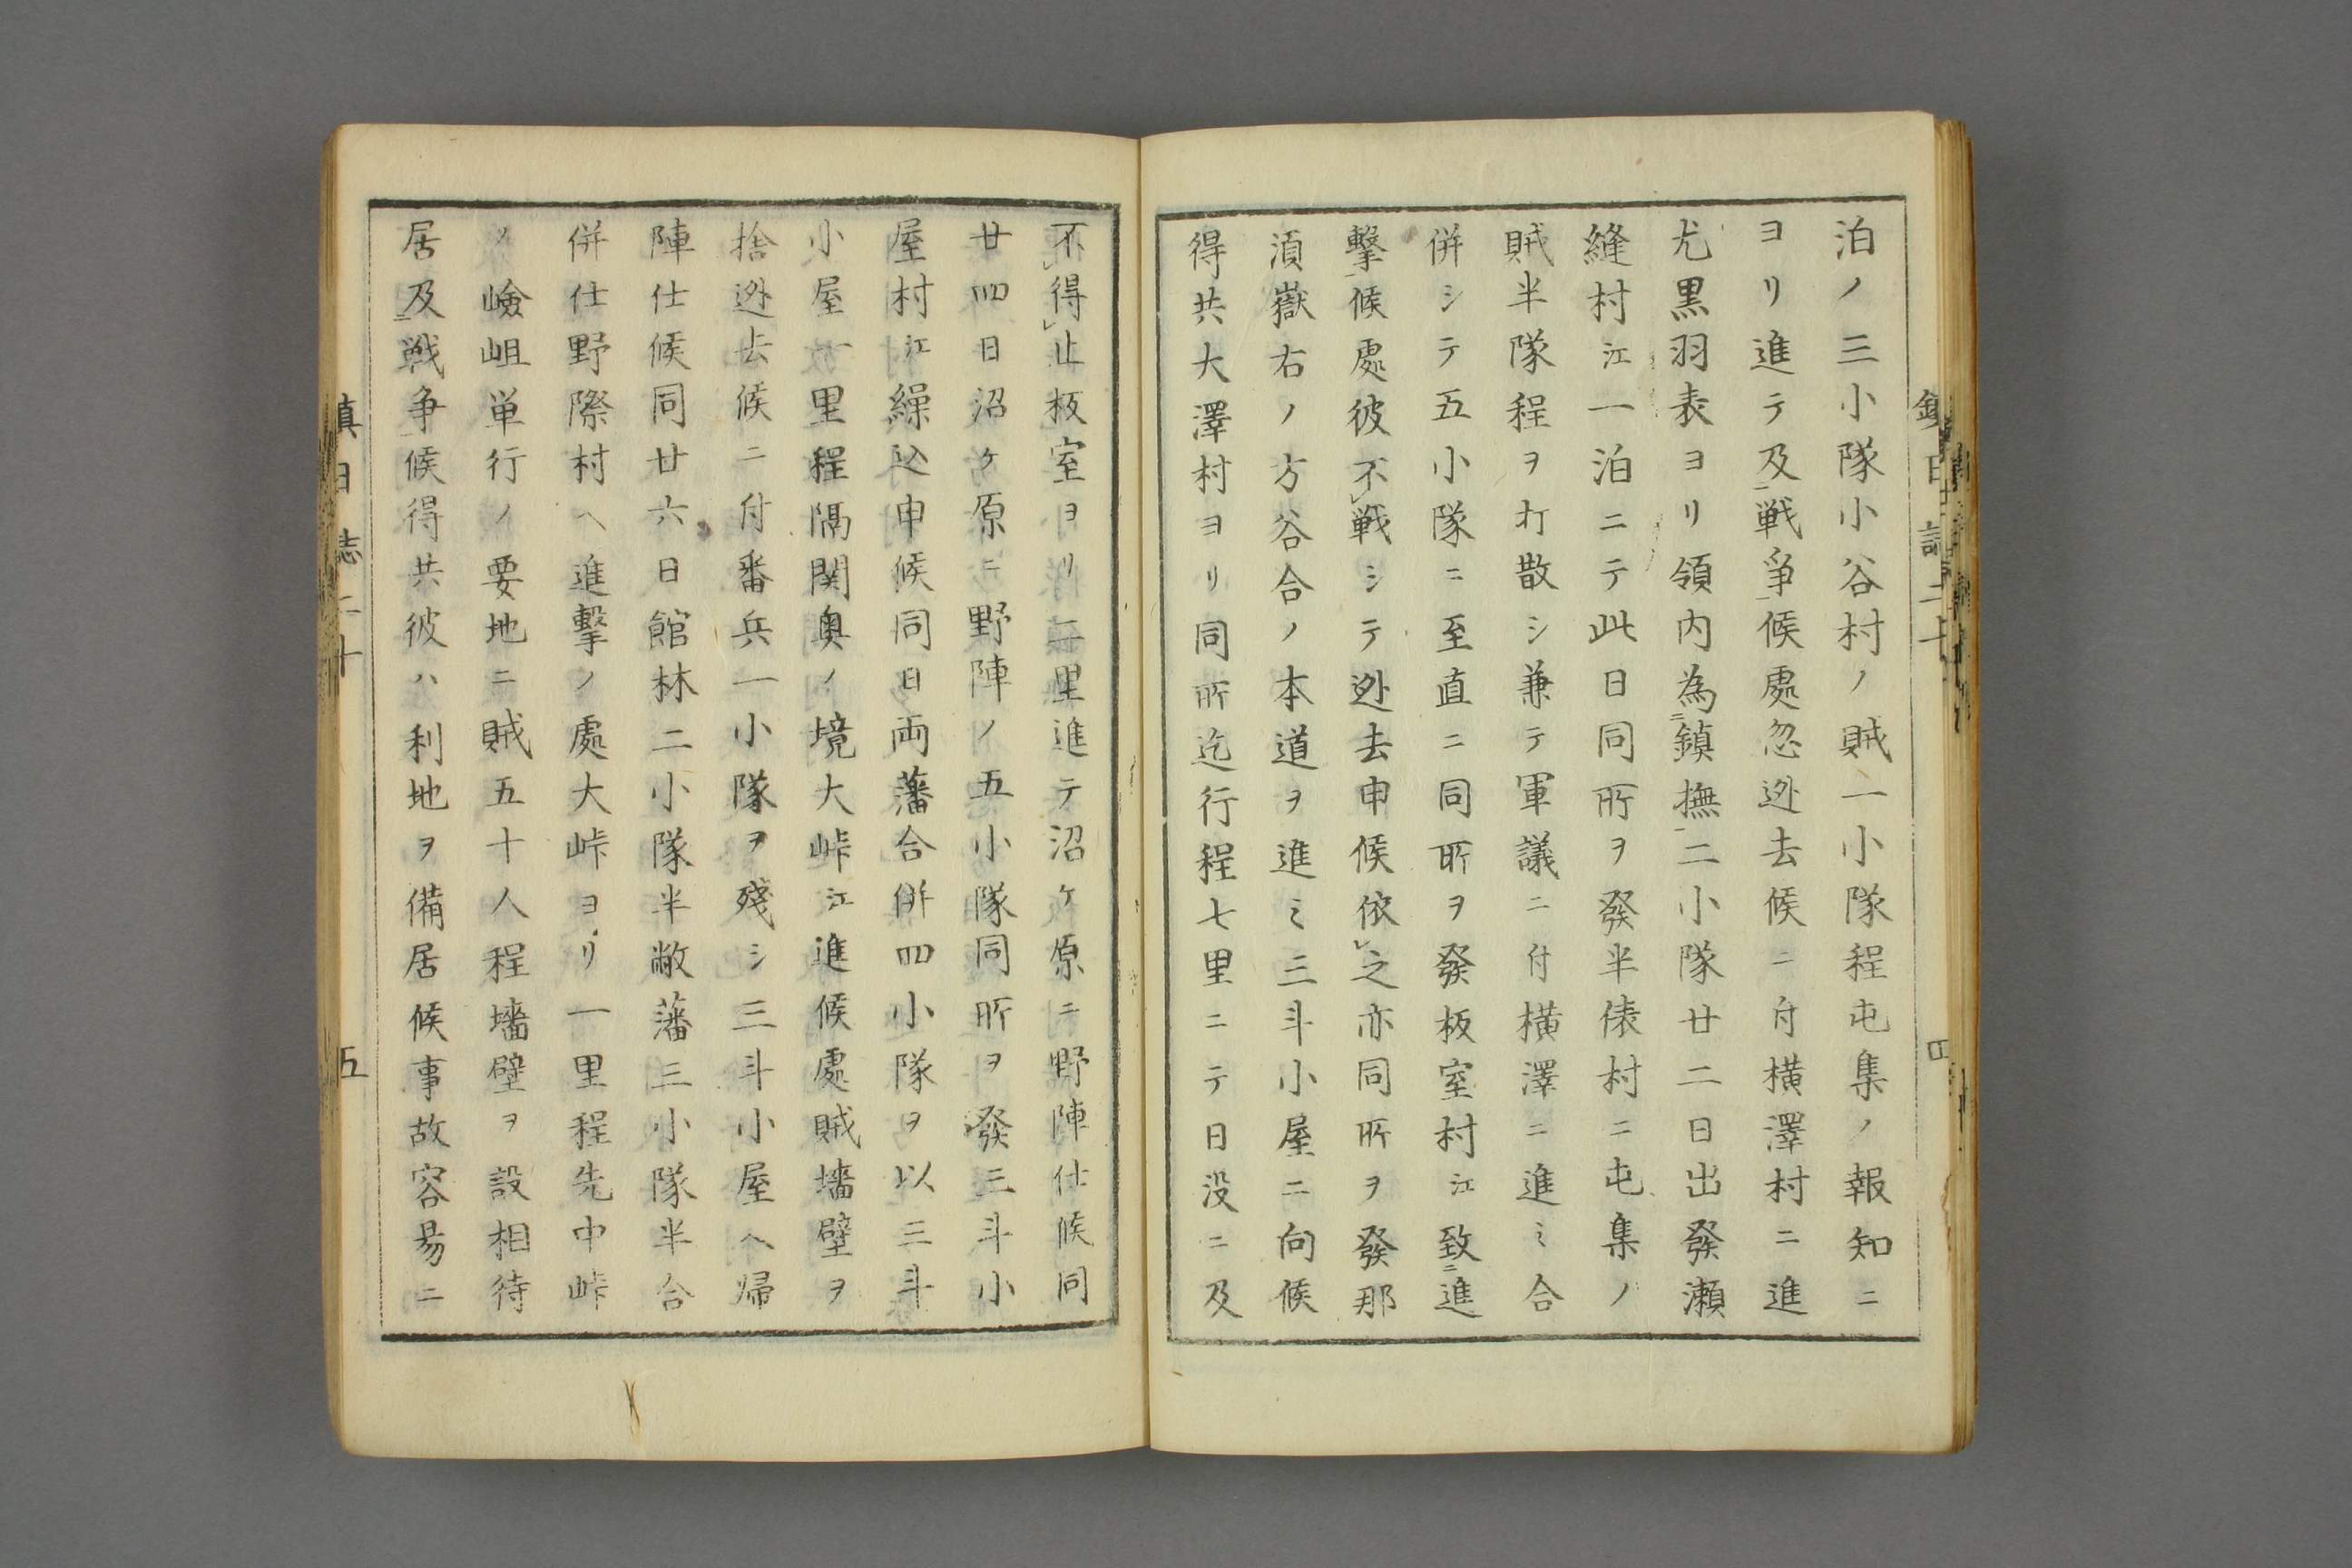 泊ノ三小隊小谷村ノ賊一小隊程屯集ノ報知ニ
ヨリ進テ及戦爭候處忽迯去候ニ付横澤村ニ進
尤黒羽表ヨリ領内為鎮撫二小隊廿二日出發瀬
縫村江一泊ニテ此日同所ヲ發半俵村ニ屯集ノ
賊半隊程ヲ打散シ兼テ軍議ニ付横澤ニ進ミ合
併シテ五小隊ニ至直ニ同所ヲ發板室村江致進
撃候處彼不戦シテ迯去申候依之亦同所ヲ發那
湏嶽右ノ方谷合ノ本道ヲ進ミ三斗小屋ニ向候
得共大澤村ヨリ同所迄行程七里ニテ日没ニ及
不得止板室ヨリ二里進テ沼ケ原ニ野陣仕候同
廿四日沼ケ原ニ野陣ノ五小隊同所ヲ發三斗小
屋村江繰込申候同日両藩合併四小隊ヲ以三斗
小屋一里程隔関奥ノ境大峠江進候處賊墻壁ヲ
捨迯去候ニ付番兵一小隊ヲ殘シ三斗小屋へ帰
陣仕候同廿六日館林二小隊半敝藩三小隊半合
併仕野際村へ進撃ノ處大峠ヨリ一里程先中峠
ノ嶮岨単行ノ要地ニ賊五十人程墻壁ヲ設相待
居及戦争候得共彼ハ利地ヲ備居候事故容昜ニ
鎮日誌二十
四
鎮日誌二十
五